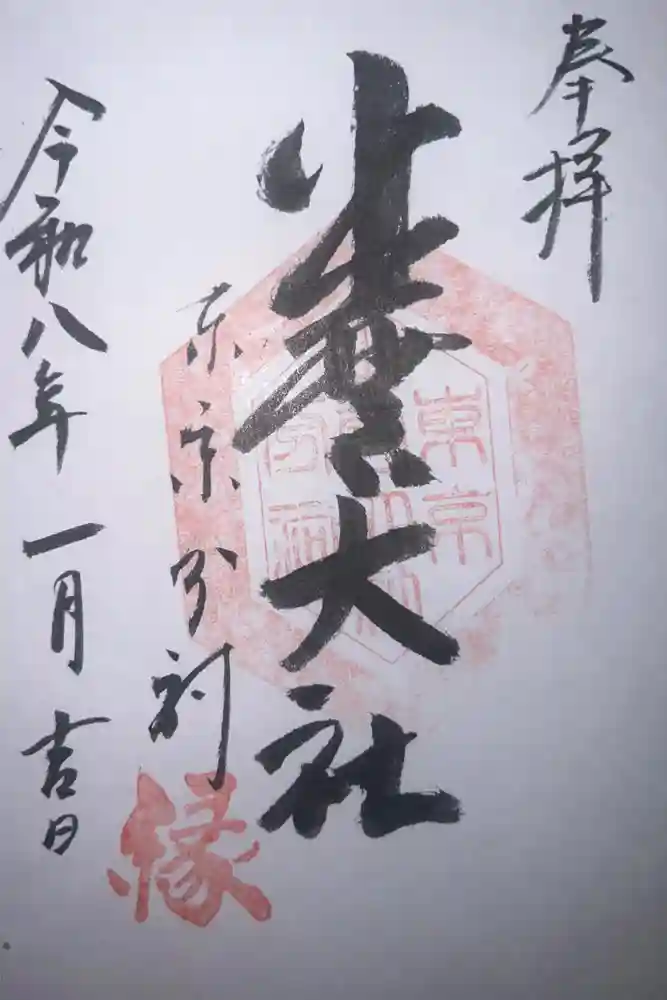 奉拝
出雲大社
東京分祠
令和八年一月吉日
東京
縁